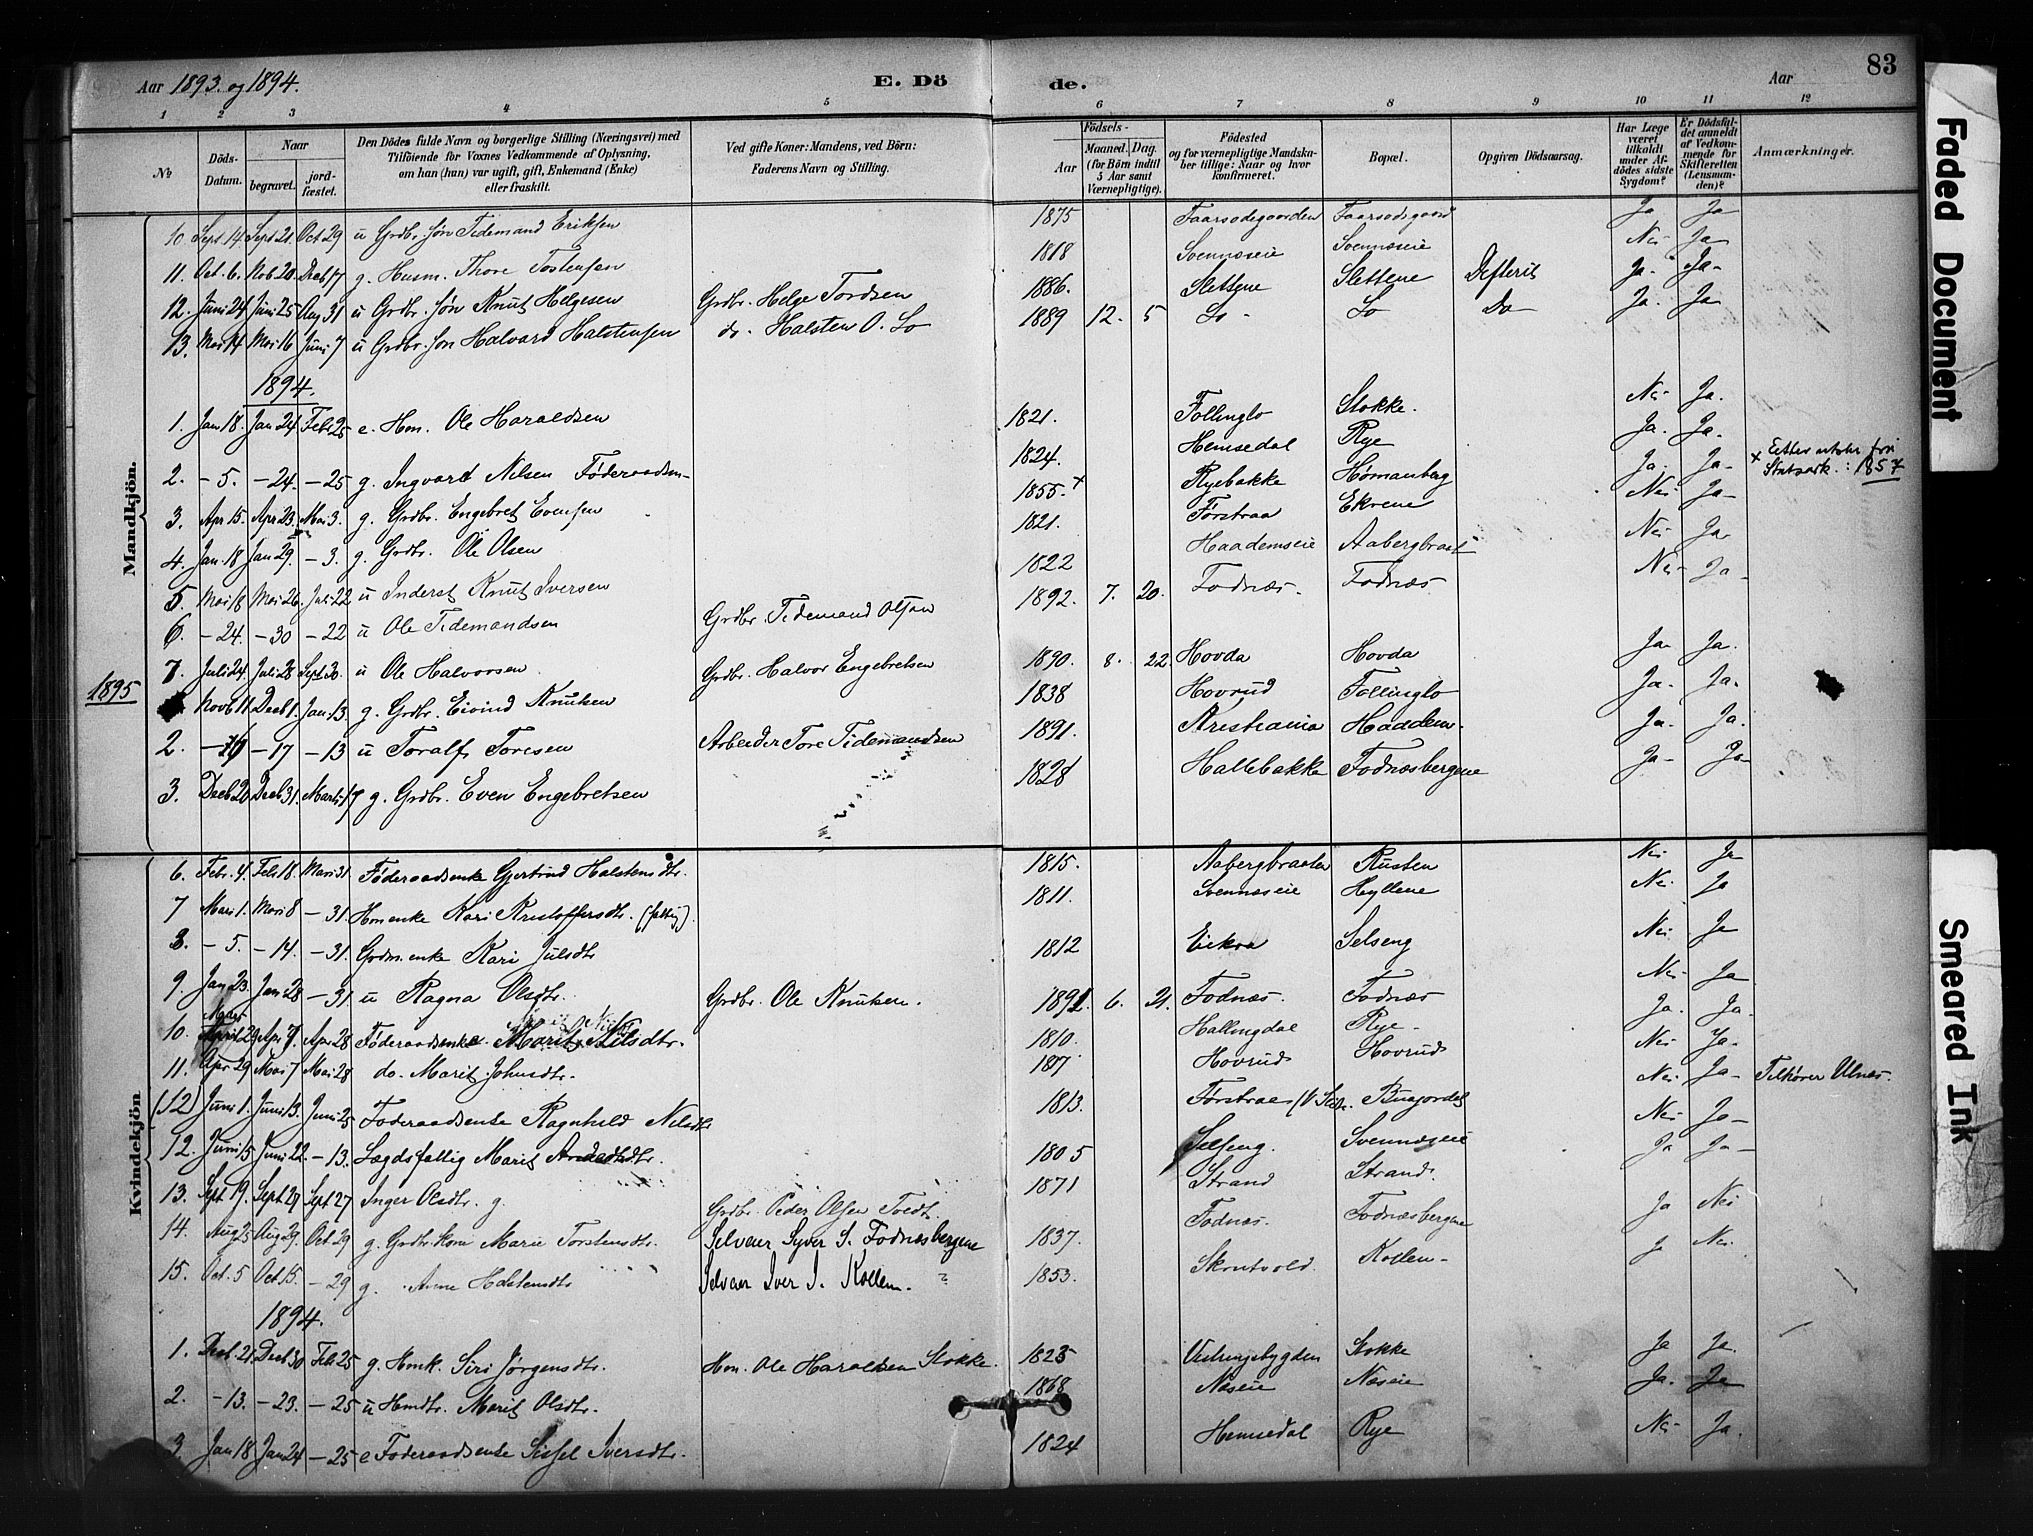 Aar 1893. og 1894. E. Dö de. Aar 83
1 2 3 4 5 6 7 8 9 10 11 12
№ Döds-Datum. Naar begravet. jordfæstet. Den Dödes fulde Navn og borgerlige Stilling (Næringsvei) med Tilföiende for Voxnes Vedkommende af Oplysning, om han (hun) var ugift, gift, Enkemand (Enke) eller fraskilt. Ved gifte Koner: Mandens, ved Börn: Faderens Navn og Stilling. Födsels- Aar Maaned. Dag. (for Börn indtil 5 Aar samt Værnepligtige). Födested og for værnepligtige Mandskaber tillige: Naar og hvor konfirmeret. Bopæl. Opgiven Dödsaarsag. Har Læge været tilkaldt under Afdödes sidste Sygdom? Er Dödsfaldet anmeldt af Vedkommende for Skifteretten (Lensmanden)? Anmærkninger.
Mandkjön.
10 Sept 14 Sept 21. Oct 29 u Grdbr. søn Tidemand Eriksen 1875 Faarsodegaarden Faarsodegaard Ja Ja
11. Oct. 6. Nob 20. Decb 17 g. Husm. Thore Tostensen 1818 Svennæseie Svennæseie Nei Ja
12. Juni 24 Juni 25 Aug 31 u Grdbr. søn Knut Helgesen Grdbr. Helge Tordsen 1886. Slettene Slettene Difterit Ja- Ja-
13. Mai 14 Mai 16 Juni 7 u Grdbr. søn Halvard Halstensen do. Halsten O. Lo 1889 12. 5 Lo - Lo Do Ja. Ja
1894.
1. Jan 18. Jan 24 Feb 25 e. Hm. Ole Haraldsen 1821. Follinglo Stokke. Nei Ja.
2. - 5. - 24. - 25 g. Ingvard Nilsen Føderaadsm- 1824. Hemsedal Rye Ja. Ja.
3. Apr 15. Apr 23. Mai 3. g. Grdbr. Engebret Evensen 1855. x Ryebakke Hømanberg Ja. Ja- x Efter attest fra Statsark.: 1857
4. Jan. 18 Jan 29. - 3. g. Grdbr. Ole Olsen 1821. Førstraa Ekrene Nei Ja-
5 Mai 18 Mai 26. Juli 22 u Inderst Knut Iversen 1822 Haademseie Aabergbraat Nei Ja
6. - 24. - 30 - 22 u Ole Tidemandsen Grdbr. Tidemand Olsen 1892. 7. 20. Fodnæs. Fodnæs Nei Ja-
7. Juli 24 Juli 28 Sept 30. u Ole Halvorsen. Grdbr. Halvor Engebretsen 1890. 8. 22. Hovda Hovda Ja- Ja.
1895
Novb 11 Decb 1. Jan. 13. g. Grdbr. Eivind Knutsen 1838 Hovrud Follinglo Ja. Ja.
2. - - 17 - 13 u Toralf Toresen Arbeider Tore Tidemandsen 1891. Kristiania Haadem. Ja. Ja.
3. Decb 20 Decb 31. Marts 17 g. Grdbr. Even Engebretsen 1828 Hallebakke Fodnæsbergene Ja- Ja-
Kvindekjön.
6. Febr. 4. Feb 18. Mars 31. Føderaadsenke Gjertrud Halstensdtr. 1815. Aabergbraaten Rusten Nei Ja
7 Mars 1. Mars 8 - 31. Hmenke Kari Kristoffersdtr. (fattig). 1811. Svennæseie Hyllene Nei Ja
8. - 5. - 14. - 31. Grdm.enke Kari Julsdtr 1812 Eikra Selseng Nei Ja
9. Jan 23. Jan 28 - 31. u Ragna Olsdtr. Grdbr. Ole Knutsen. 1892 6. 21. Fodnæs. Fodnæs Nei- Ja
10. April 29 Apr 7. Apr 28 Føderaadsenke. Marit Nilsdtr. 1810. Hallingdal Rye- Ja. Ja.
11. Apr 29 Mai 7 Mai 28 do. Marit Johnsdtr. 187 Hovrud Hovrud Nei Ja.
(12) Juni 1. Juni 13. Juni 25 Føderaadsenke Ragnhild Nilsdtr 1813. Førstrae Buajordet Nei Ja- Tilhører Ulnæs.
12. Juni 15 Juni 22. - 13. Lægdsfattig Marit 1805 Selseng. Svennæseie Nei Ja-
13. Sept 19. Sept 27 Sept 27 Inger Olsdtr. g Grdbr. Peder Olsen Tvedt. 1871 Strand Strand. Ja Ja-
14. Aug 25 Aug 29. Oct 29 g. Grdbr. kone Marie Torstensdtr. Selveier Syver S. Fodnæsbergene 1837. Fodnæs. Fodnæsbergene Ja Nei
15. Oct. 5 Oct 15. - 29 g. Anne Halstensdtr Selveier Iver I. Kollen. 1853. Skrutvold Kollen- Ja Nei
1894.
1. Decb. 21. Decb 30 Feb 25 g. Hmk. Siri Jørgensdtr. Hm. Ole Haraldsen Stokke. 1823 Vestringsbygden Stokke Ja Ja.
2. - 13. - 23. - 25 u Hmdtr. Marit Olsdtr. 1868 Næseie Næseie Ja. Ja
3. Jan 18 Jan 24 - 25 e Føderaadsenke Sissel Iversdtr. 1824 Hemsedal Rye Nei Ja.
Faded Document
Smeared Ink